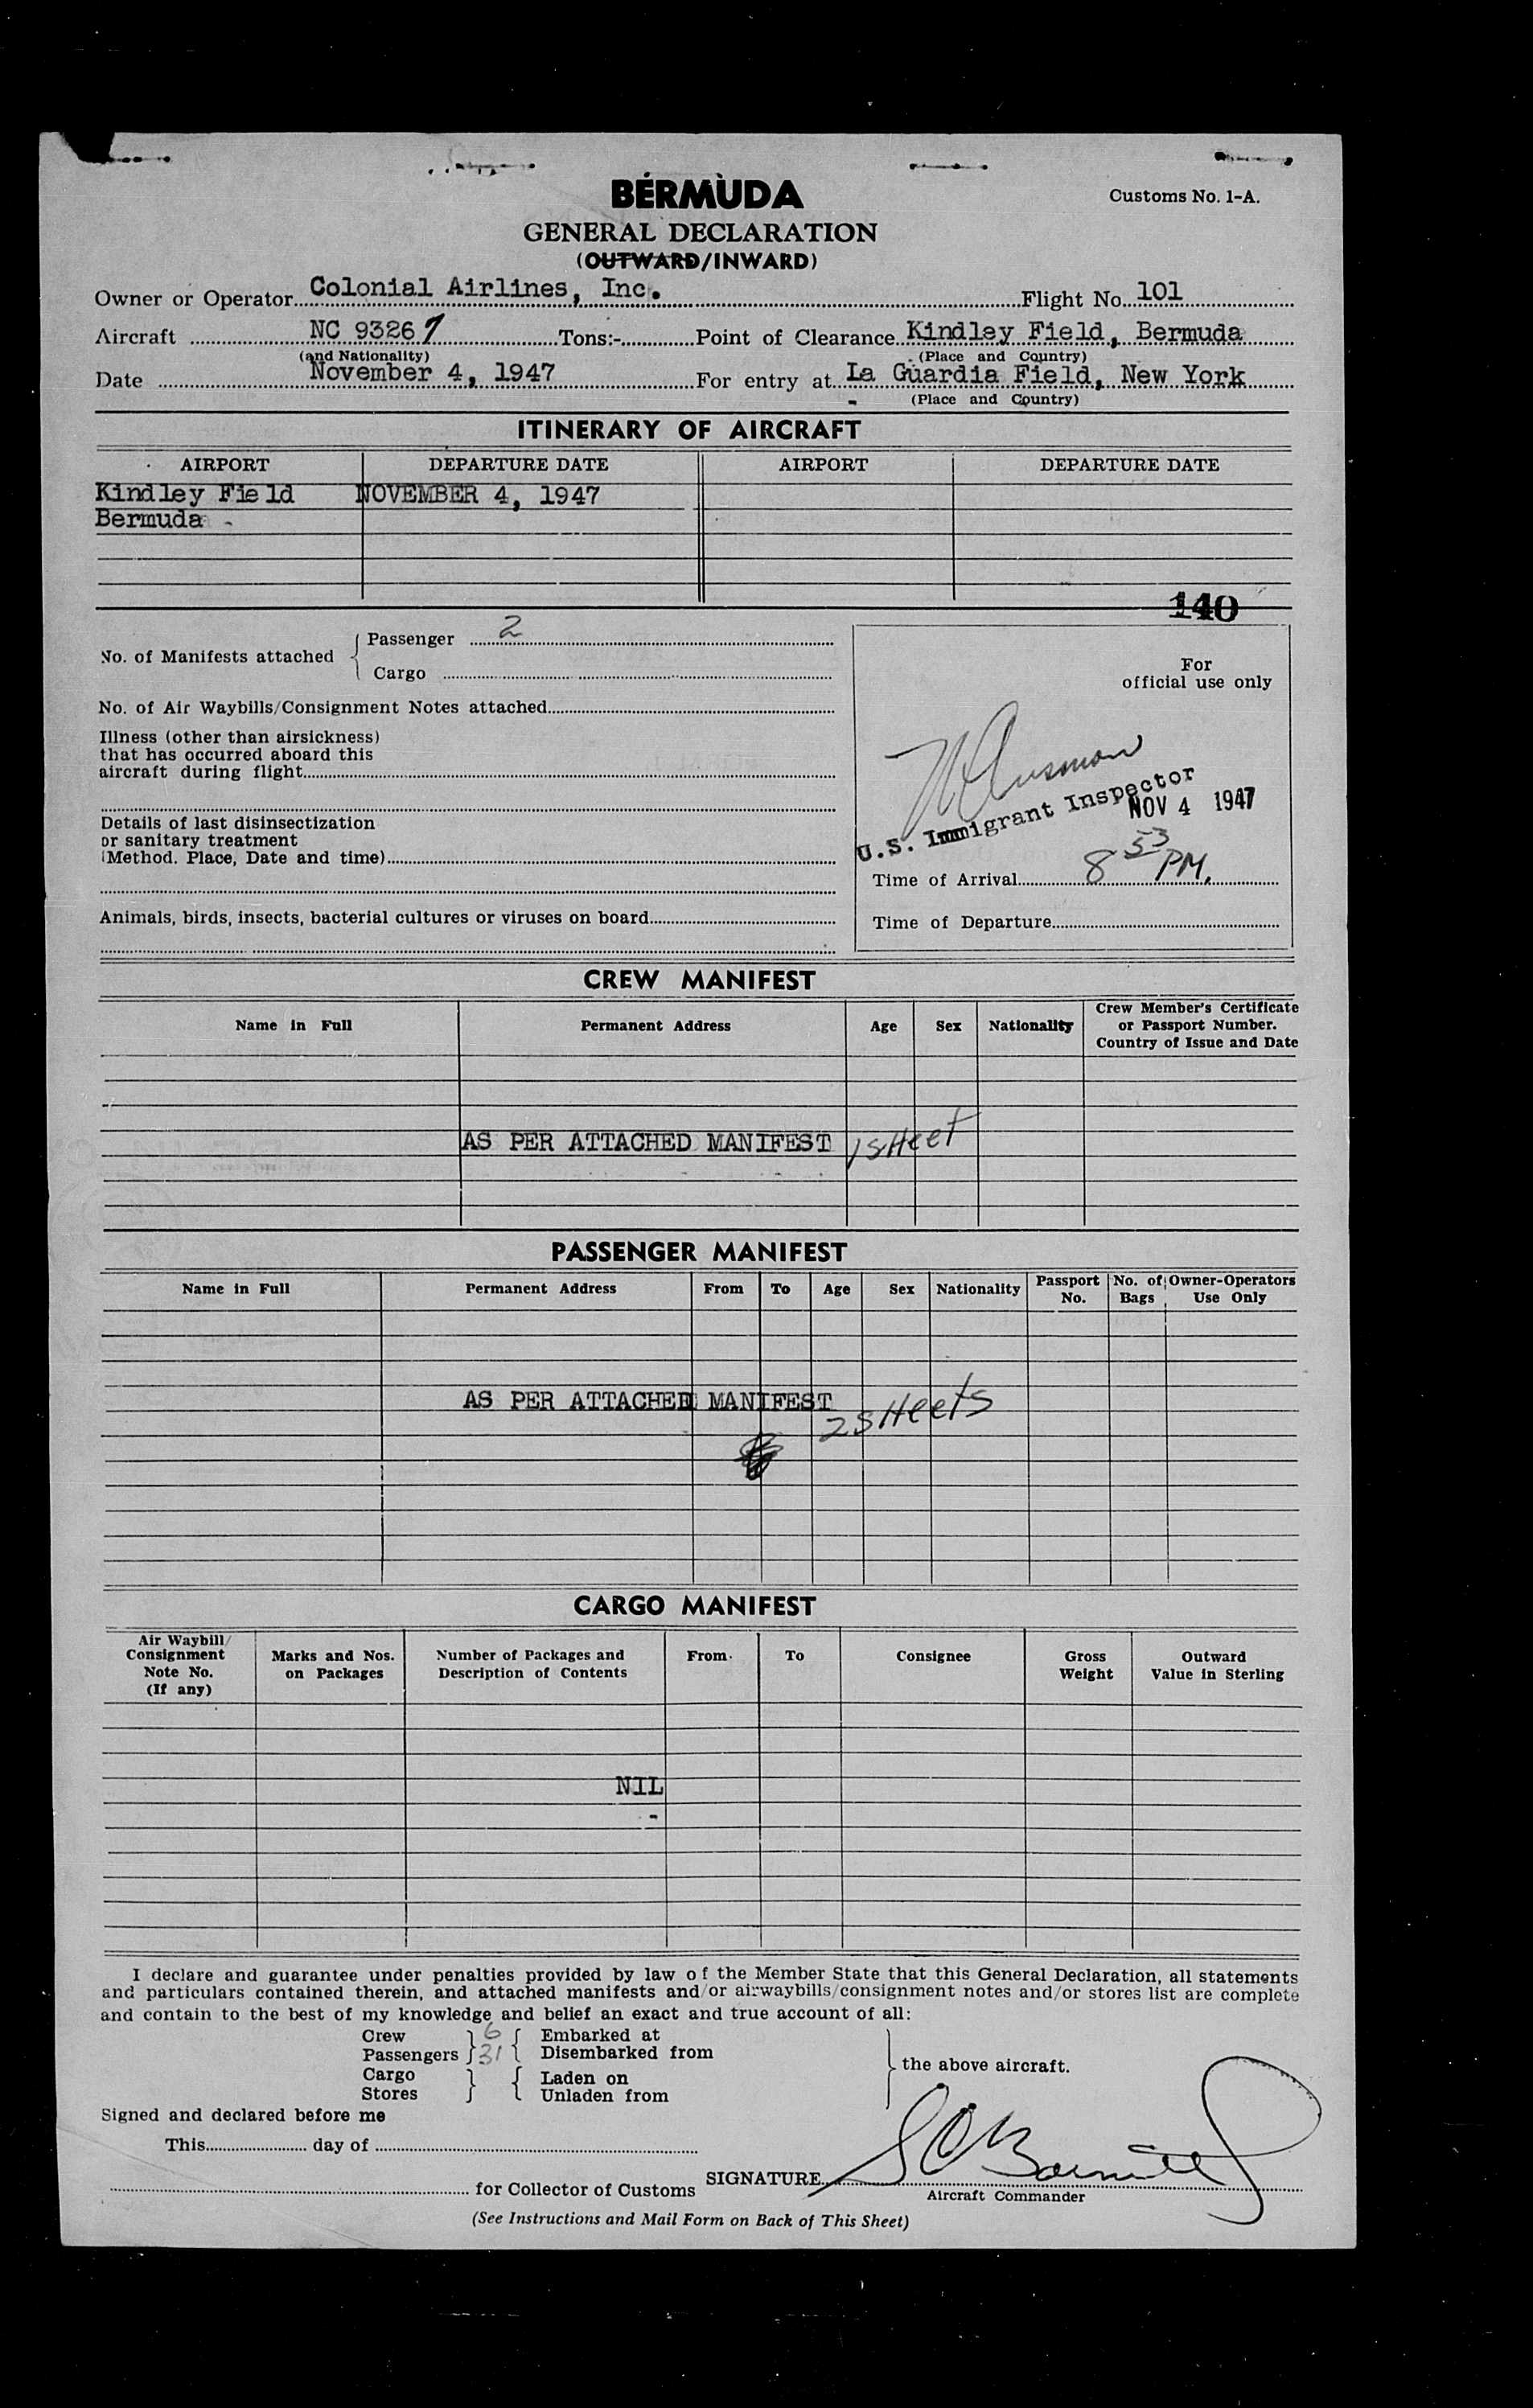 BERMUDA
Customs No. 1-A.
GENERAL DECLARATION
(OUTWARD/INWARD)
Owner or Operator Colonial Airlines, Inc. Flight No. 101
Aircraft NC 93267 Tons:- Point of Clearance Kindley Field, Bermuda
(and Nationality) (Place and Country)
Date November 4, 1947 For entry at La Guardia Field, New York
(Place and Country)
ITINERARY OF AIRCRAFT
AIRPORT DEPARTURE DATE AIRPORT DEPARTURE DATE
Kindley Field NOVEMBER 4, 1947
Bermuda -
140
No. of Manifests attached { Passenger 2
Cargo
For
official use only
No. of Air Waybills/Consignment Notes attached
Illness (other than airsickness)
that has occurred aboard this
aircraft during flight
Details of last disinsectization
or sanitary treatment
(Method. Place, Date and time)
Animals, birds, insects, bacterial cultures or viruses on board
U.S. Immigrant Inspector
NOV 4 1947
Time of Arrival 8 53 PM.
Time of Departure
CREW MANIFEST
Name in Full Permanent Address Age Sex Nationality Crew Member's Certificate
or Passport Number.
Country of Issue and Date
AS PER ATTACHED MANIFEST 1 SHeet
PASSENGER MANIFEST
Name in Full Permanent Address From To Age Sex Nationality Passport No. No. of Bags Owner-Operators Use Only
AS PER ATTACHED MANIFEST 2 SHeets
CARGO MANIFEST
Air Waybill/
Consignment
Note No.
(If any)
Marks and Nos.
on Packages
Number of Packages and
Description of Contents
From. To Consignee
Gross
Weight
Outward
Value in Sterling
NIL
-
I declare and guarantee under penalties provided by law of the Member State that this General Declaration, all statements
and particulars contained therein, and attached manifests and/or airwaybills/consignment notes and/or stores list are complete
and contain to the best of my knowledge and belief an exact and true account of all:
Crew } 6 { Embarked at
Passengers } 31 { Disembarked from
Cargo } { Laden on
Stores } { Unladen from
} the above aircraft.
Signed and declared before me
This day of
for Collector of Customs
SIGNATURE
Aircraft Commander
(See Instructions and Mail Form on Back of This Sheet)